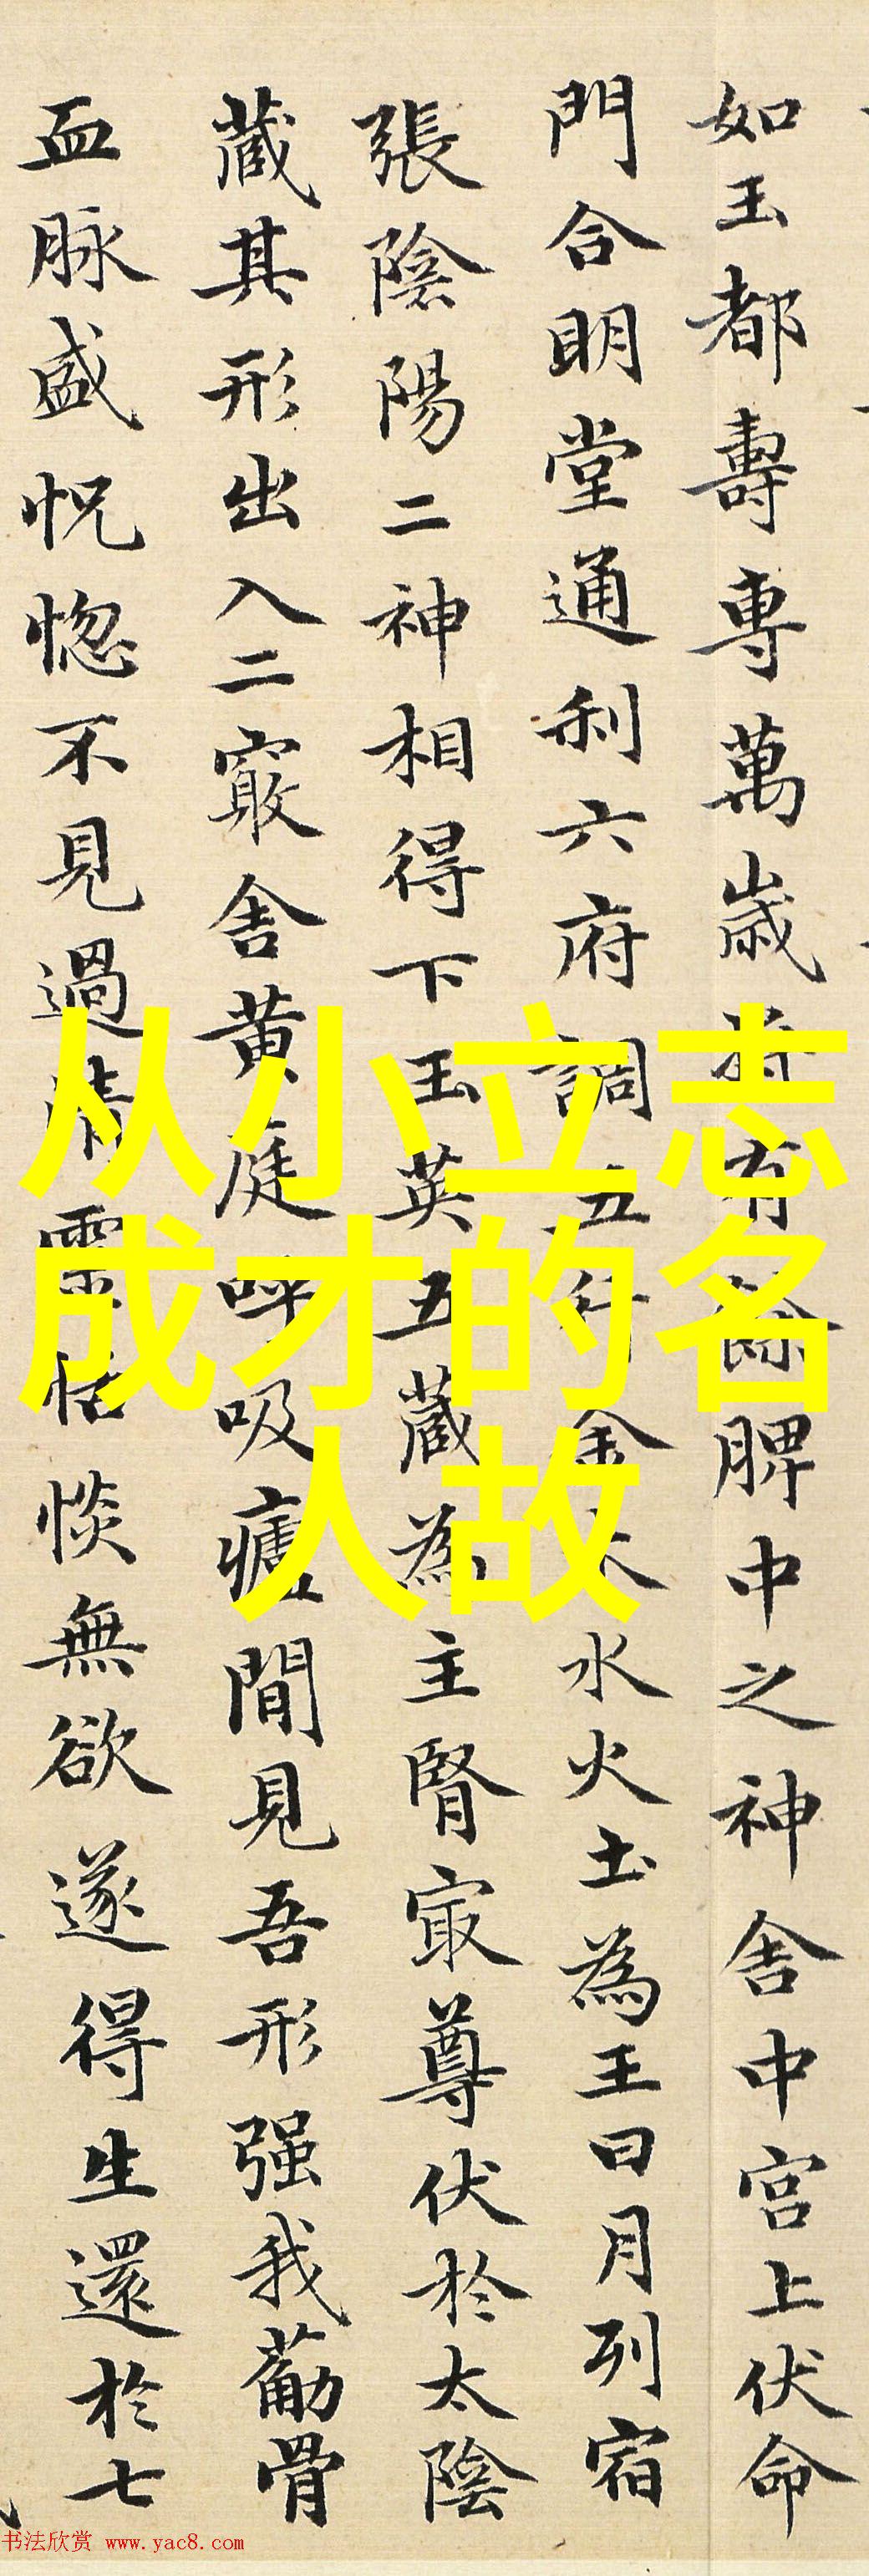 如玉都壽專萬歲將有餘脾中之神舍中宮上伏命
門合明堂通利六府調五行金木水火土為王日月列宿
張陰陽二神相得下玉英五藏為主腎寂尊伏於太陰
藏其形出入二竅舍黄庭呼吸廬間見吾形强我葍骨
血脉盛怳惚不見過清靈恬惔無欲遂得生還於七
从小立志
成才的名
人故
书法欣赏 www.yac8.com